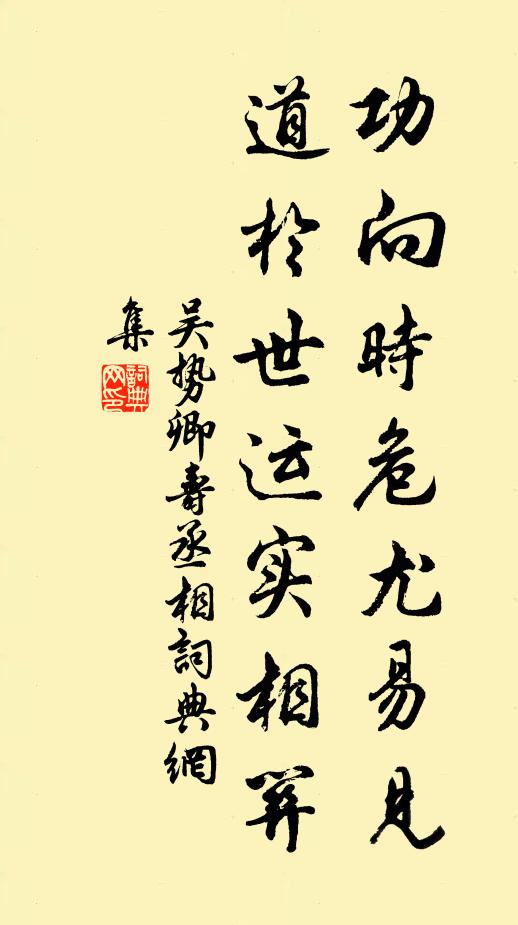 功向時危尤易見
道於世运实相関
吴势卿壽丞相詞典網
集
詞典網印